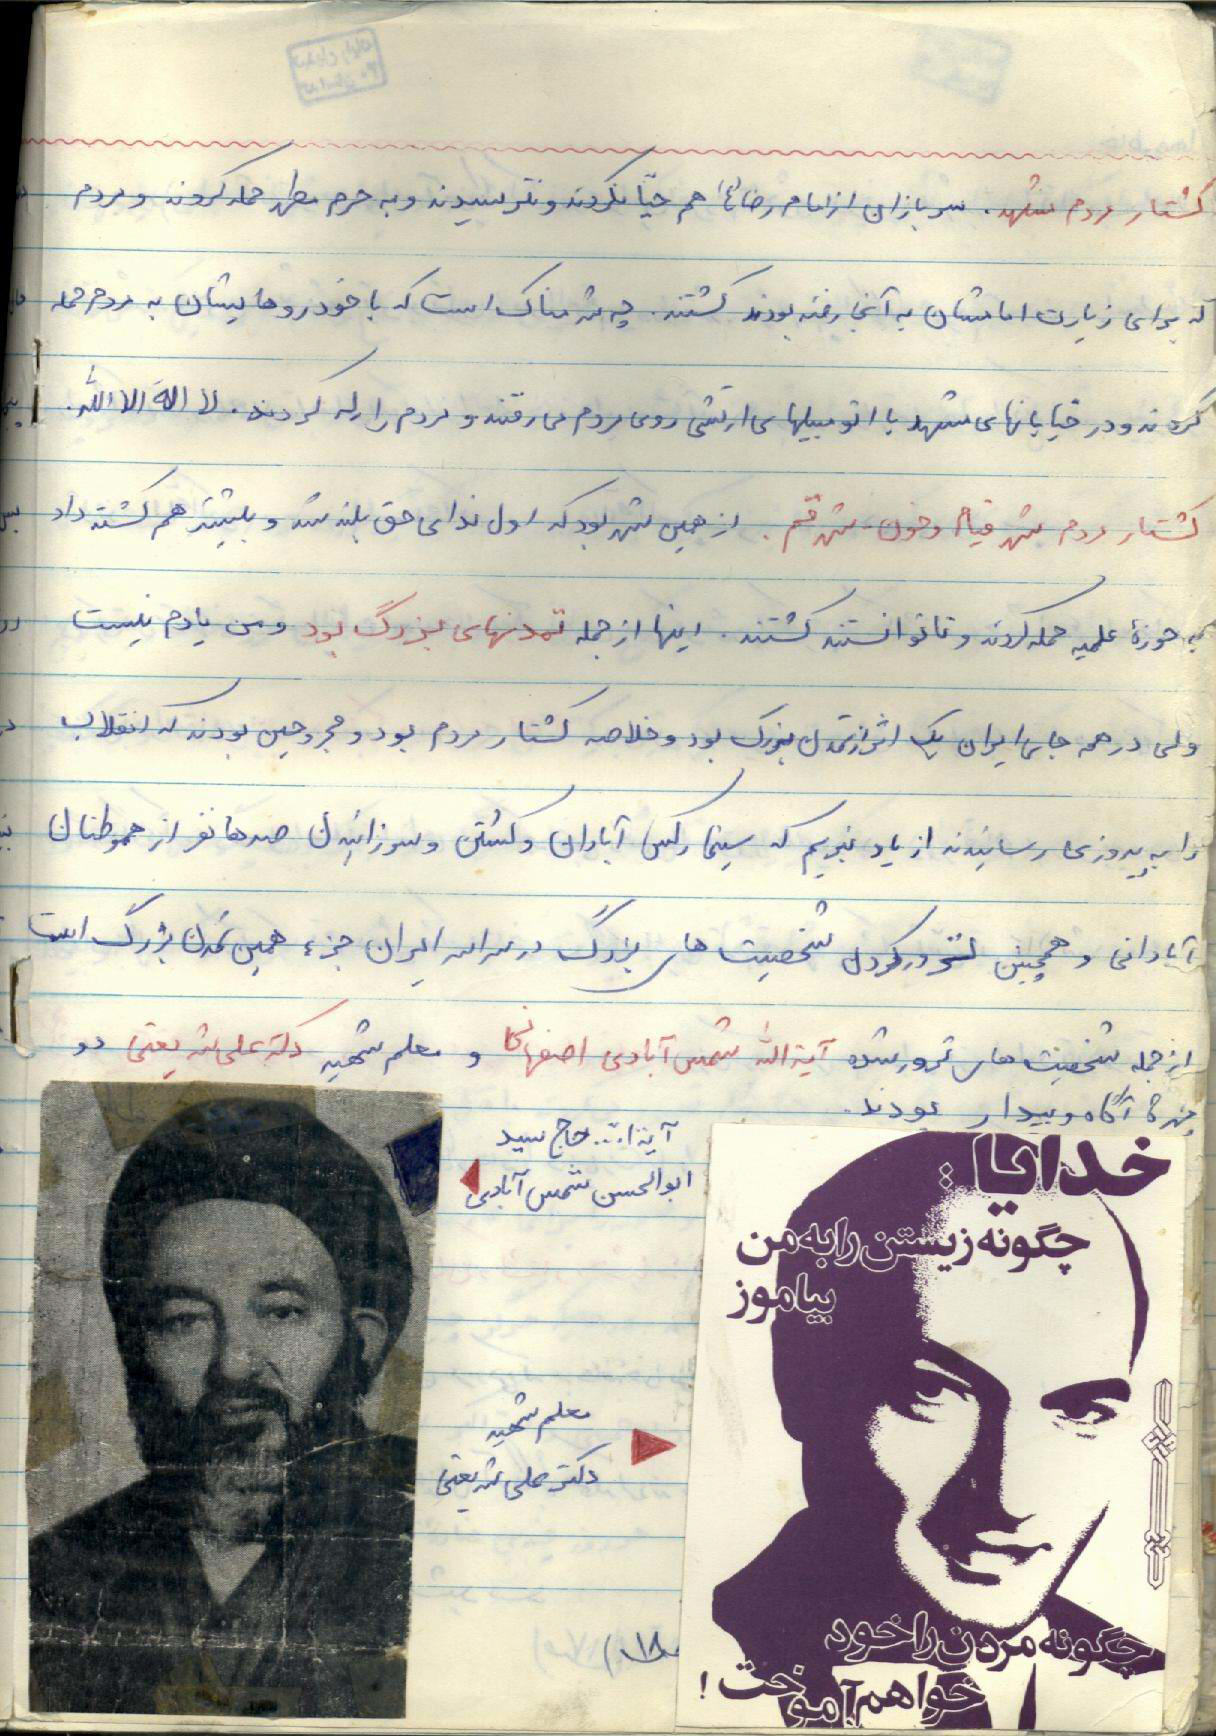 کشتار مردم مشهد. سربازان از امام رضا (ع) هم حیّا نکردند و نترسیدند و به حرم مطهر حمله کردند و مردم
که برای زیارت امامشان به آنجا رفته بودند کشتند. چه شرمناک است که با خودروهایشان به مردم حمله
کردند و در خیابانهای مشهد با اتومبیلهای ارتشی روی مردم می رفتند و مردم را له کردند. لا اله الا الله.
کشتار مردم شهر قیام و خون - شهر قم. از همین شهر بود که اول ندای حق بلند شد و بیشتر هم کشته داد
به حوزهٔ علمیه حمله کردند و تا توانستند کشتند. اینها از جمله تمدنهای بزرگ بود و من یادم نیست
ولی در همه جای ایران یک اثر از تمدن بزرگ بود و خلاصه کشتار مردم بود و مجروحین بودند که انقلاب
را به پیروزی رسانیدند از یاد نبریم که سینما رکس آبادان و کشتن و سوزانیدن صدها نفر از هموطنان
آبادانی و همچنین ترور کردن شخصیت های بزرگ در سراسر ایران جزء همین تمدن بزرگ است
از جمله شخصیت های ترور شده آیة الله شمس آبادی اصفهانی و معلم شهید دکتر علی شریعتی دو
چهرهٔ آگاه و بیدار بودند.
آیة ا... حاج سید
ابوالحسن شمس آبادی
معلم شهید
دکتر علی شریعتی
خدایا:
چگونه زیستن را به من
بیاموز
چگونه مردن را خود
خواهم آموخت!